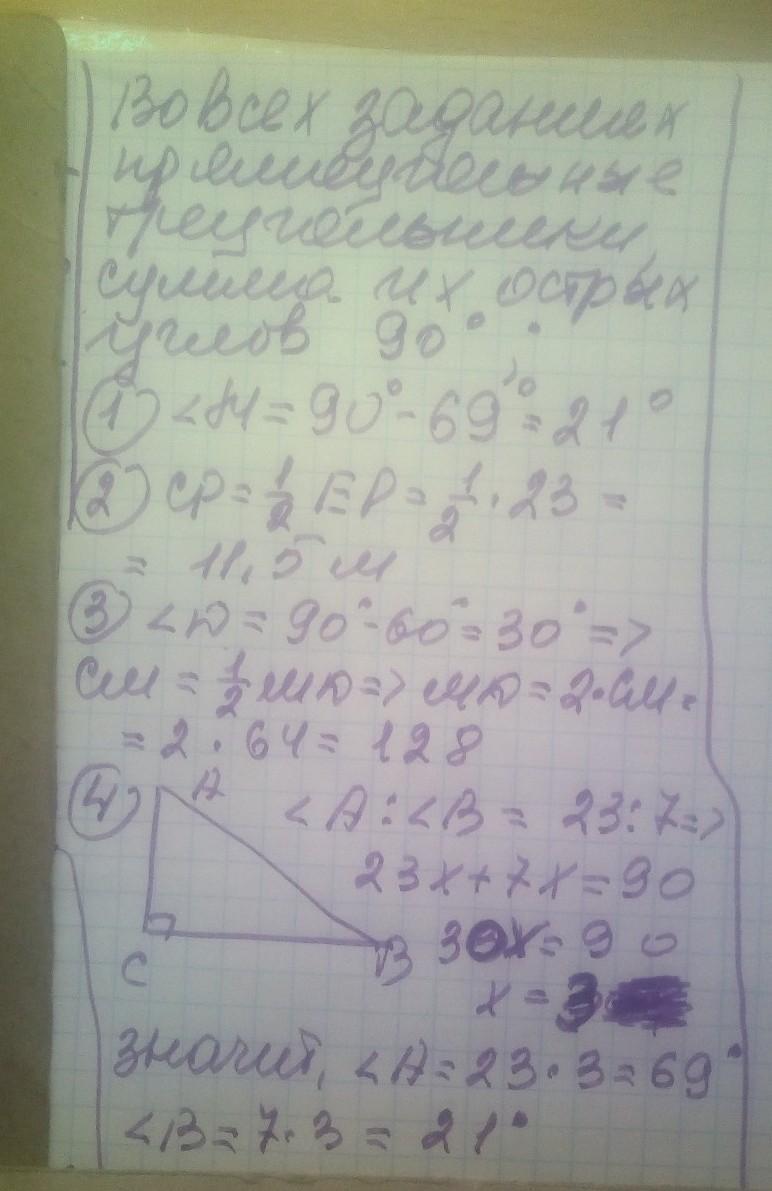 Во всех заданиях
прямоугольные
треугольники,
сумма их острых
углов 90°.
① ∠M = 90° - 69° = 21°
② CP = 1/2 EP = 1/2 · 23 =
= 11,5 м
③ ∠D = 90° - 60° = 30° =>
CM = 1/2 MD => MD = 2 · CM =
= 2 · 64 = 128
④ A ∠A : ∠B = 23 : 7 =>
23x + 7x = 90
C B 30x = 90
x = 3
значит, ∠A = 23 · 3 = 69°
∠B = 7 · 3 = 21°